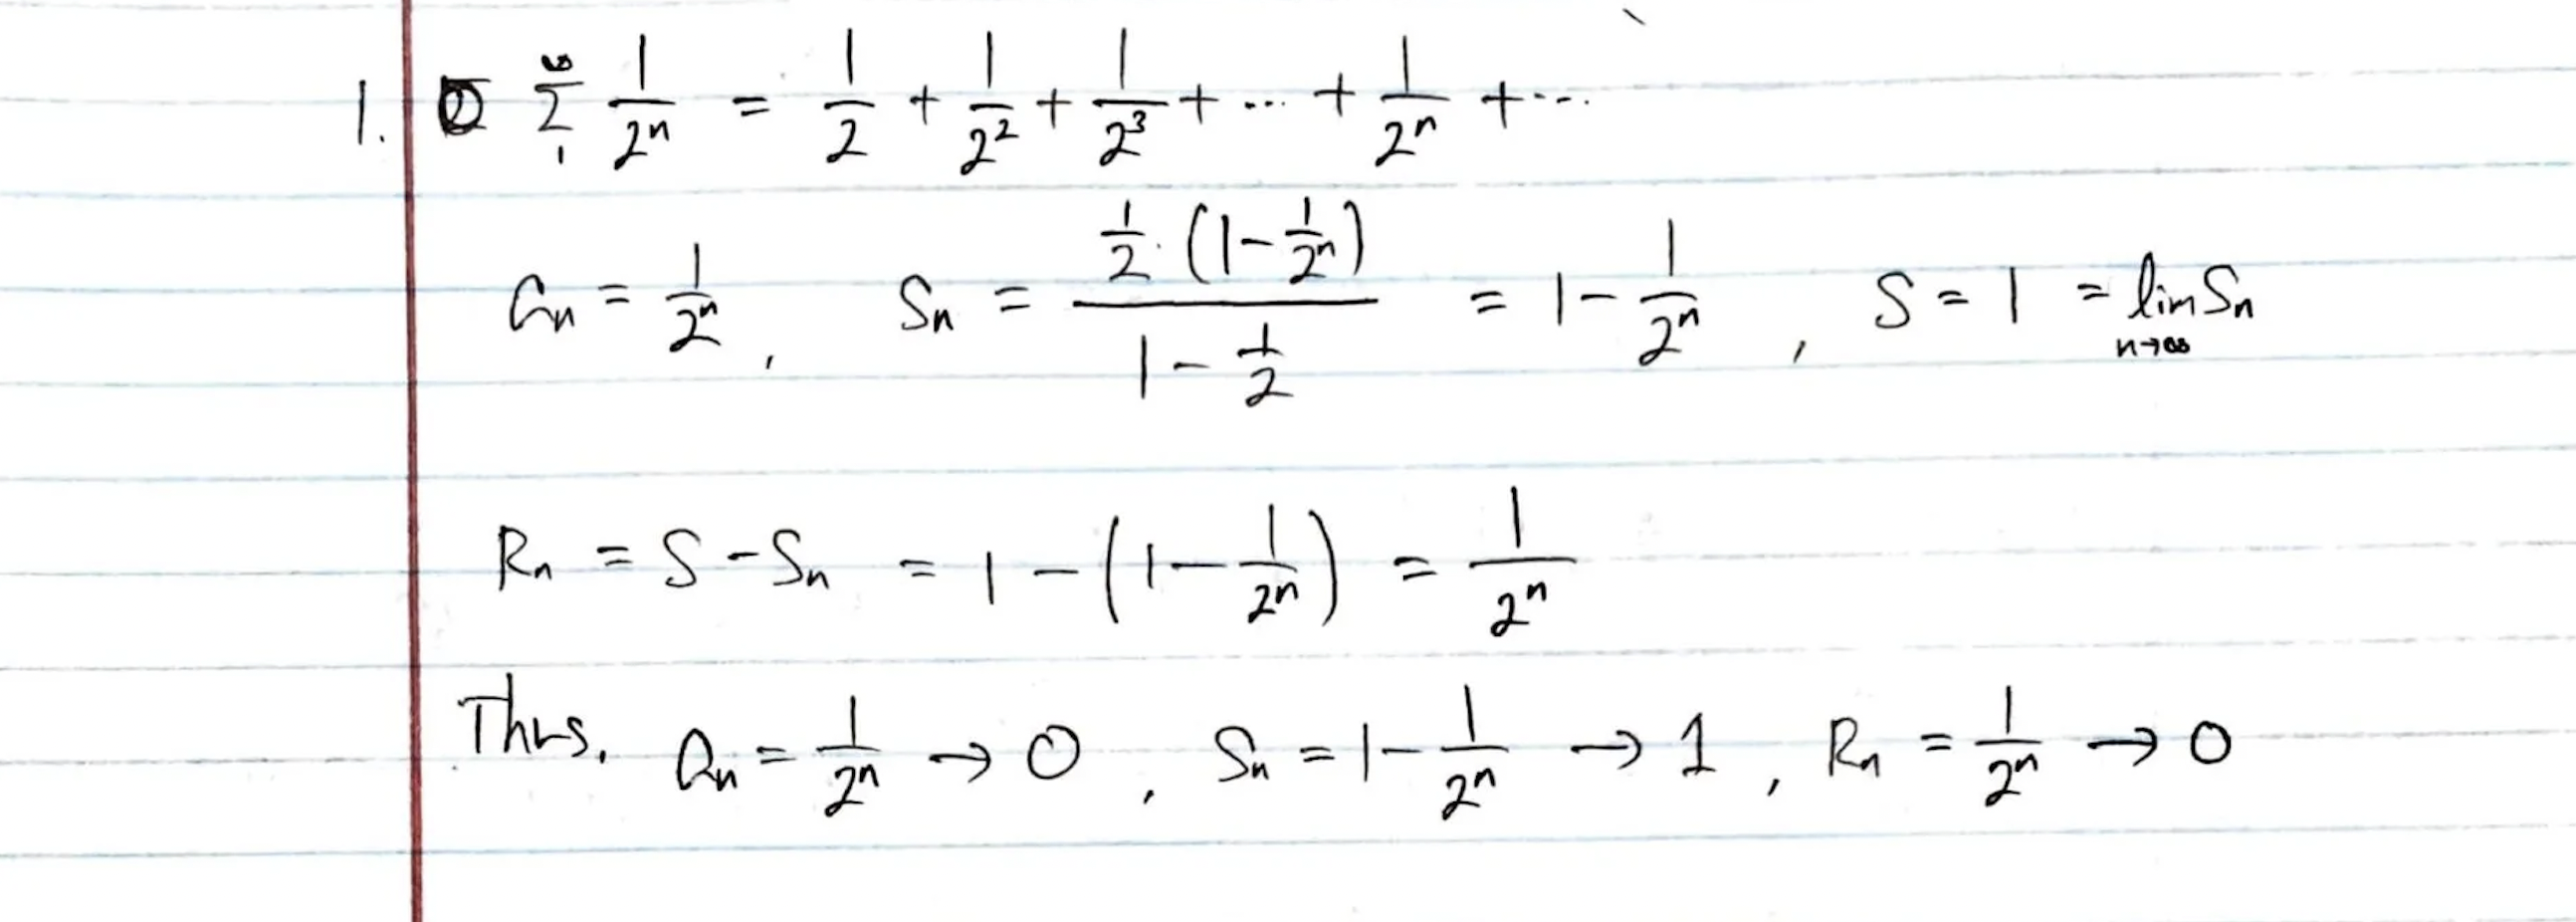 1. ∑_1^∞ 1/2^n = 1/2 + 1/2^2 + 1/2^3 + ... + 1/2^n + ...
a_n = 1/2^n , S_n = (1/2 · (1 - 1/2^n)) / (1 - 1/2) = 1 - 1/2^n , S = 1 = lim_{n→∞} S_n
R_n = S - S_n = 1 - (1 - 1/2^n) = 1/2^n
Thus, a_n = 1/2^n → 0 , S_n = 1 - 1/2^n → 1 , R_n = 1/2^n → 0